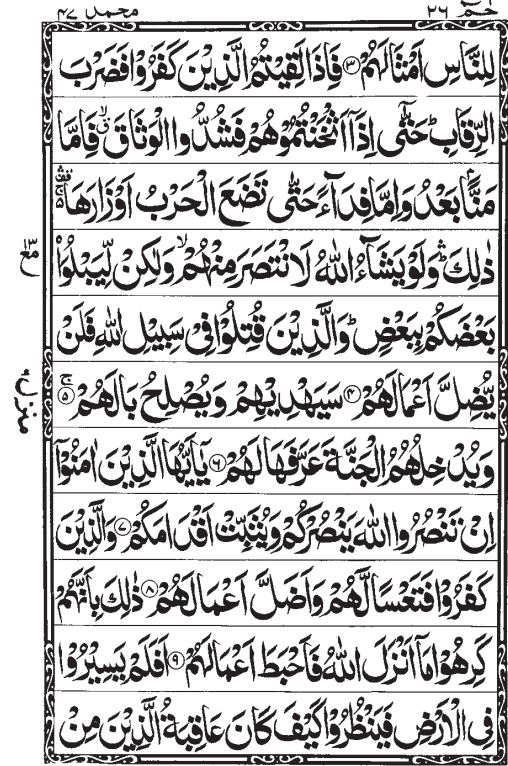 حٰمٓ ٢٦
محمد ٤٧
لِلنَّاسِ اَمْثَالَهُمْ ﴿۳﴾ فَاِذَا لَقِيْتُمُ الَّذِيْنَ كَفَرُوْا فَضَرْبَ
الرِّقَابِ ؕ حَتّٰۤى اِذَاۤ اَثْخَنْتُمُوْهُمْ فَشُدُّوا الْوَثَاقَ ۙۗ فَاِمَّا
مَنًّۢا بَعْدُ وَاِمَّا فِدَآءً حَتّٰى تَضَعَ الْحَرْبُ اَوْزَارَهَا ۛ۫ۚ
ذٰلِكَ ؕۛ وَلَوْ يَشَآءُ اللّٰهُ لَانْتَصَرَ مِنْهُمْ ۙ وَلٰكِنْ لِّيَبْلُوَا۟
بَعْضَكُمْ بِبَعْضٍ ؕ وَالَّذِيْنَ قُتِلُوْا فِىْ سَبِيْلِ اللّٰهِ فَلَنْ
يُّضِلَّ اَعْمَالَهُمْ ﴿۴﴾ سَيَهْدِيْهِمْ وَيُصْلِحُ بَالَهُمْ ۚ﴿۵﴾
وَيُدْخِلُهُمُ الْجَنَّةَ عَرَّفَهَا لَهُمْ ﴿۶﴾ يٰۤاَيُّهَا الَّذِيْنَ اٰمَنُوْۤا
اِنْ تَنْصُرُوا اللّٰهَ يَنْصُرْكُمْ وَيُثَبِّتْ اَقْدَامَكُمْ ﴿۷﴾ وَالَّذِيْنَ
كَفَرُوْا فَتَعْسًا لَّهُمْ وَاَضَلَّ اَعْمَالَهُمْ ﴿۸﴾ ذٰلِكَ بِاَنَّهُمْ
كَرِهُوْا مَاۤ اَنْزَلَ اللّٰهُ فَاَحْبَطَ اَعْمَالَهُمْ ﴿۹﴾ اَفَلَمْ يَسِيْرُوْا
فِى الْاَرْضِ فَيَنْظُرُوْا كَيْفَ كَانَ عَاقِبَةُ الَّذِيْنَ مِنْ
مع ١٣
منزل ٦